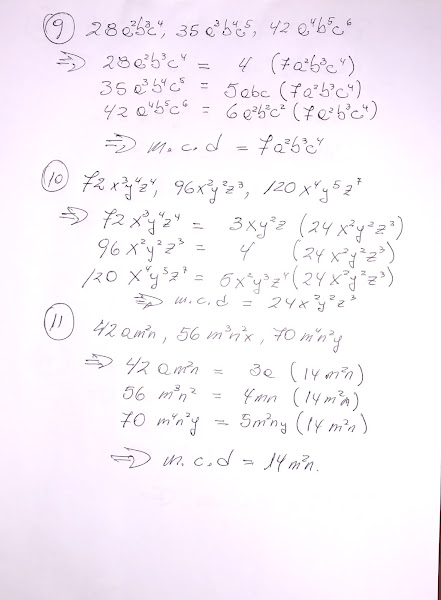 9 28a²b³c⁴, 35a³b⁴c⁵, 42a⁴b⁵c⁶
⇒, 28a²b³c⁴ = 4 (7a²b³c⁴)
35a³b⁴c⁵ = 5abc (7a²b³c⁴)
42a⁴b⁵c⁶ = 6a²b²c² (7a²b³c⁴)
⇒, m.c.d = 7a²b³c⁴
10 72x³y⁴z⁴, 96x²y²z³, 120x⁴y⁵z⁷
⇒ 72x³y⁴z⁴ = 3xy²z (24x²y²z³)
96x²y²z³ = 4 (24x²y²z³)
120x⁴y⁵z⁷ = 5x²y³z⁴(24x²y²z³)
⇒ m.c.d = 24x²y²z³
11
42am²n, 56m³n²x, 70m⁴n²y
⇒ 42am²n = 3a (14m²n)
56m³n² = 4mn (14m²n)
70m⁴n²y = 5m²ny (14m²n)
⇒ m.c.d = 14m²n.